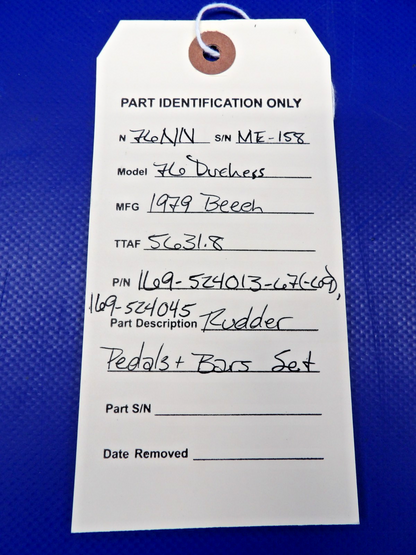 PART IDENTIFICATION ONLY
N 76NN S/N ME-158
Model 76 Duchess
MFG 1979 Beech
TTAF 5631.8
P/N 169-524013-67(-69),
169-524045
Part Description Rudder
Pedals + Bars Set
Part S/N
Date Removed